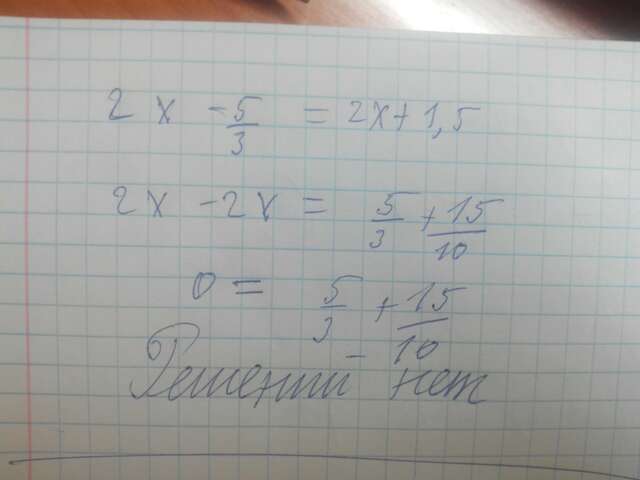 2x - 5/3 = 2x + 1,5
2x - 2x = 5/3 + 15/10
0 = 5/3 + 15/10
Решений нет